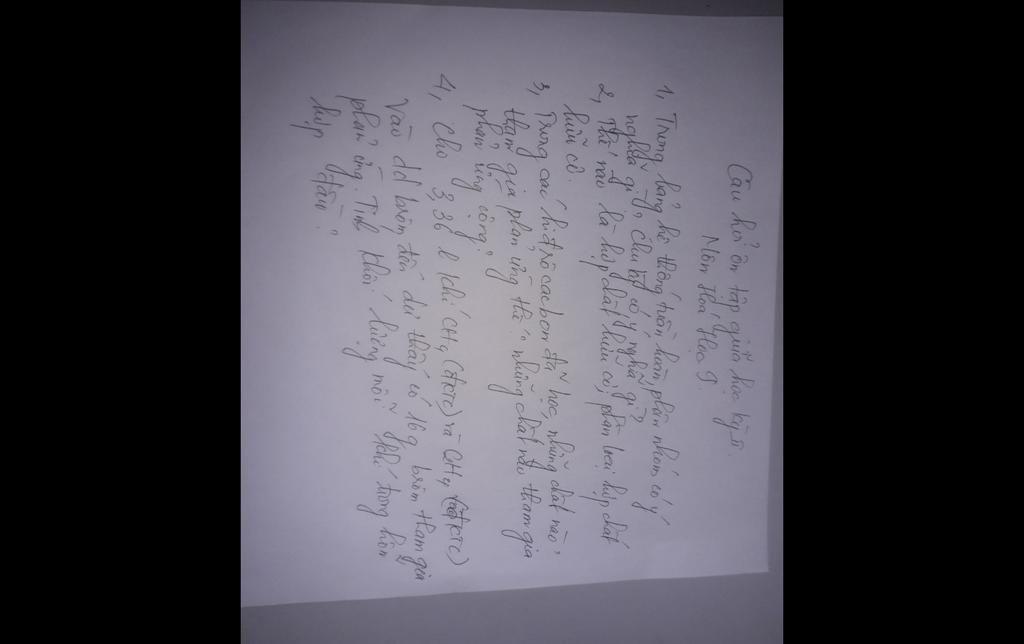 Câu hỏi ôn tập giữa học kỳ II.
Môn Hoá Học 9.
1, Trong bảng hệ thống tuần hoàn, phân nhóm có ý
nghĩa gì, chu kỳ có ý nghĩa gì?
2, Thế nào là hợp chất hữu cơ, phân loại hợp chất
hữu cơ.
3, Trong các hiđrôcacbon đã học, những chất nào
tham gia phản ứng thế? những chất nào tham gia
phản ứng cộng?
4, Cho 3,36 l khí CH4 (đktc) và CH4 (đktc)
Vào dd brôm đến dư thấy có 16g brôm tham gia
phản ứng. Tính khối lượng mỗi khí trong hỗn
hợp đầu?